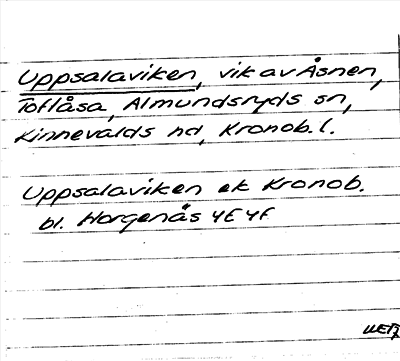 Uppsalaviken, vik av Åsnen,
Toflåsa, Almundsryds sn,
Kinnevalds hd, Kronob. l.
Uppsalaviken ek Kronob.
bl. Horgenäs 4E4f